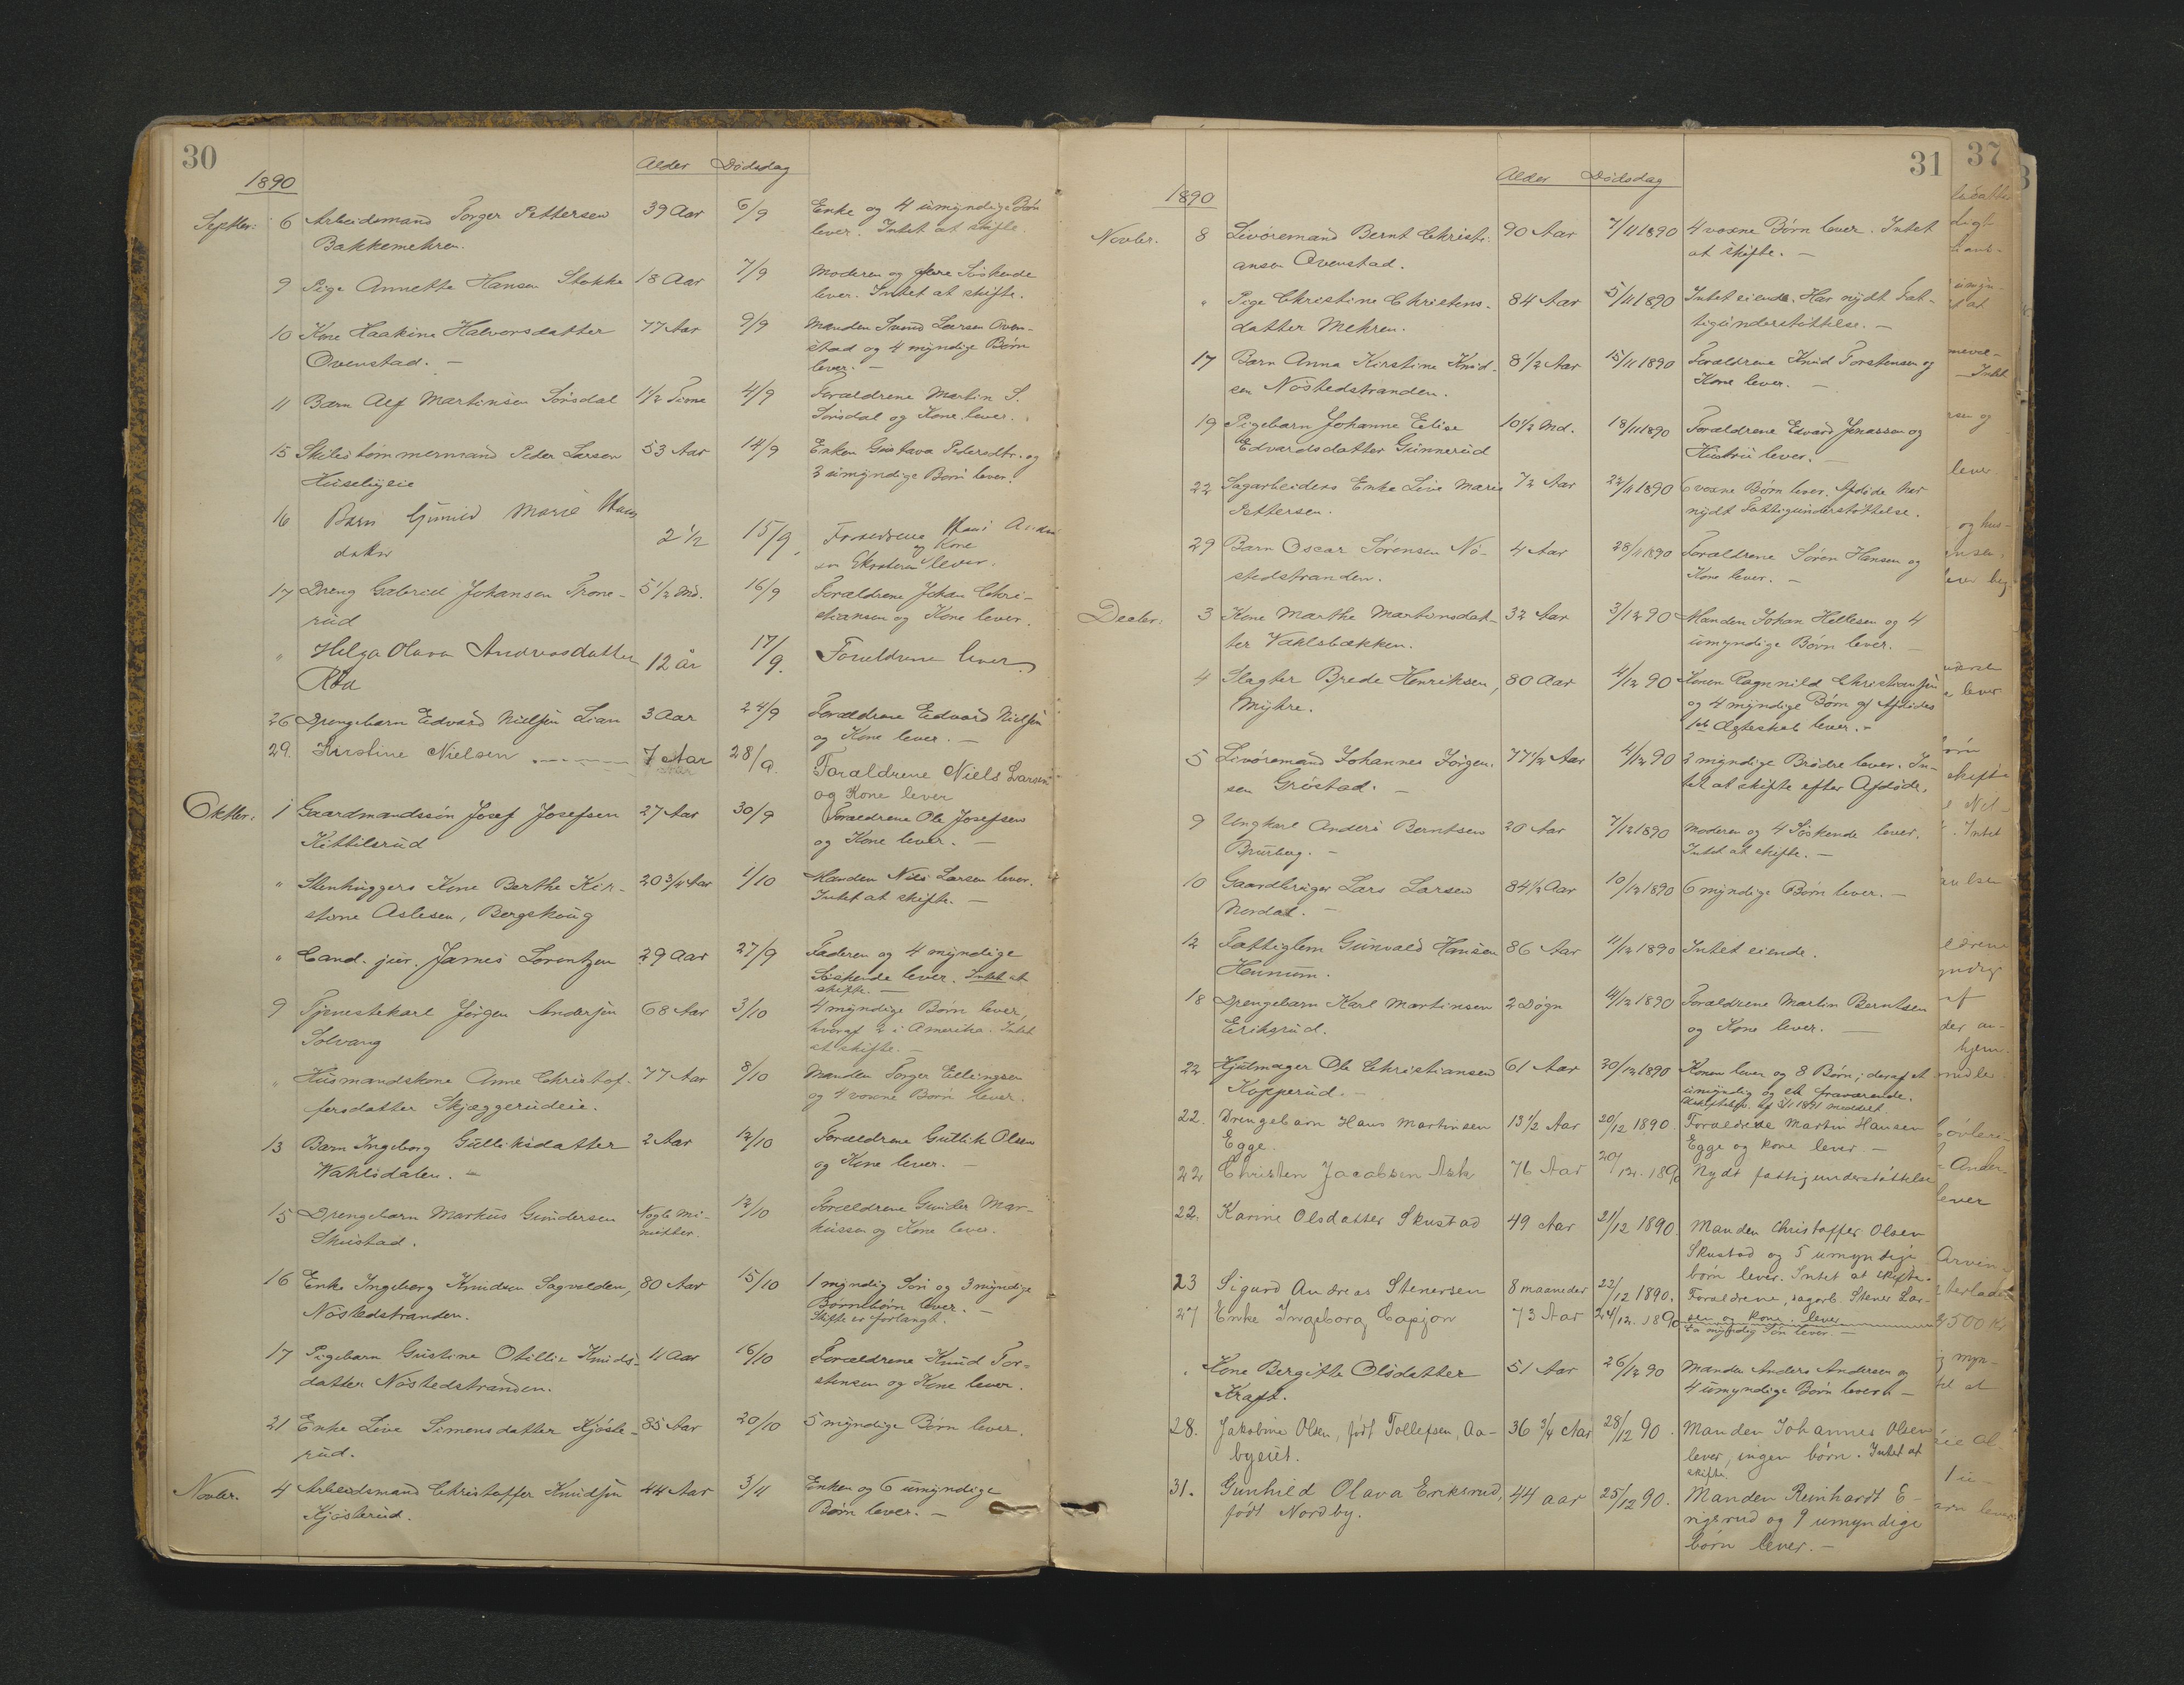 30
Alder Dødsdag
1890
Septbr: 6 Arbeidsmand Torger Pettersen 39 Aar 6/9 Enke og 4 umyndige Børn
Bakkemehren. lever. Intet at skifte.
9 Pige Annette Hansen Stokke 18 Aar 7/9 Moderen og flere Søskende
lever. Intet at skifte.
10 Kone Haakine Halvorsdatter 77 Aar 9/9 Manden Svend Larsen Oven-
Ovenstad. — stad og 4 myndige Børn
lever. —
11 Barn Alf Martinsen Sørsdal 1 1/2 Time 4/9 Forældrene Martin S.
Sørsdal og Kone lever.
15 Skibstømmermand Peder Larsen 53 Aar 14/9 Enken Gustava Pedersdtr. og
Huseby eie 3 umyndige Børn lever.
16 Barn Gunild Marie Hans 2 1/2 15/9. Forældrene Hans Andre
datter og Kone
sen lever.
17 Dreng Gabriel Johansen Trone- 5 1/2 Md. 16/9 Forældrene Johan Chri-
rud stiansen og Kone lever.
" Helga Olava Andreasdatter 12 år 17/9. Forældrene lever
Rød
26 Drengebarn Edvard Nielsen Lian 3 Aar 24/9 Forældrene Edvard Nielsen
og Kone lever. —
29. Kristine Nielsen 7 Aar 28/9. Forældrene Niels Larsen
og Kone lever
Oktbr: 1 Gaardmandssøn Josef Josefsen 27 Aar 30/9 Forældrene Ole Josefsen
Kittilsrud og Kone lever. —
" Stenhuggers Kone Berthe Kir- 20 3/4 Aar 1/10 Manden Nils Larsen lever.
stine Aslesen, Bergskoug Intet at skifte. —
" Cand. jur. James Lorentzen 29 Aar 27/9 Faderen og 4 myndige
Søskende lever. Intet at
skifte. —
9 Tjenestekarl Jørgen Andersen 68 Aar 3/10 4 myndige Børn lever,
Solvang hvoraf 2 i Amerika. Intet
at skifte. —
" Husmandskone Anne Christof- 77 Aar 8/10 Manden Torger Ellingsen
fersdatter Skjæggerudeie. og 4 voxne Børn lever.
13 Barn Ingeborg Gulliksdatter 2 Aar 12/10 Forældrene Gullik Olsen
Wahlsdalen. — og Kone lever. —
15 Drengebarn Markus Gundersen Nogle Mi- 12/10 Forældrene Gunder Mar-
Skustad. nutter. kussen og Kone lever.
16 Enke Ingeborg Knudsen Sagvolden, 80 Aar 15/10 1 myndig Søn og 3 myndige
Nøstedstranden. Børnebørn lever. —
Skifte er forlangt.
17 Pigebarn Gustine Otillie Knuds- 11 Aar 16/10 Forældrene Knud Tor-
datter Nøstedstranden. stensen og Kone lever.
21 Enke Live Simensdatter Kjøste- 85 Aar 20/10 5 myndige Børn lever.
rud.
Novbr. 4 Arbeidsmand Christoffer Knudsen 44 Aar 3/11 Enken og 6 umyndige
Kjøsterud. Børn lever. —
31
Alder Dødsdag
1890
Novbr. 8 Livøremand Bernt Christi- 90 Aar 7/11 1890 4 voxne Børn lever. Intet
ansen Ovenstad. at skifte. —
" Pige Christine Christens- 84 Aar 5/11 1890 Intet eiende. Har nydt Fat-
datter Mehren. tigunderstøttelse. —
17 Barn Anna Kirstine Knud- 8 1/2 Aar 15/11 1890 Forældrene Knud Torstensen og
sen Nøstedstranden. Kone lever. —
19 Pigebarn Johanne Elise 10 1/2 Md. 18/11 1890 Forældrene Edvard Jonassen og
Edvardsdatter Gunnerud Hustru lever. —
22 Sagarbeiders Enke Live Marie 72 Aar 22/11 1890 6 voxne Børn lever. Afdøde har
Pettersen. nydt Fattigunderstøttelse.
29 Barn Oscar Sørensen Nø- 4 Aar 28/11 1890 Forældrene Søren Hansen og
stedstranden. Kone lever. —
Decbr: 3 Kone Marthe Martinsdat- 32 Aar 3/12 90 Manden Johan Hellesen og 4
ter Vahlsbækken. umyndige Børn lever. —
4 Slagter Brede Henriksen, 80 Aar 4/12 90 Konen Ragnhild Christiansen
Myhre. og 4 myndige Børn af Afdødes
1ste Ægteskab lever. —
5 Livøremand Johannes Jørgen- 77 1/2 Aar 4/12 90 2 myndige Brødre lever. In-
sen Grøstad. — tet at skifte efter Afdøde.
9 Ungkarl Anders Berntsen 20 Aar 7/12 1890 Moderen og 4 Søskende lever.
Bruberg. — Intet at skifte. —
10 Gaardbruger Lars Larsen 84 1/2 Aar 10/12 1890 6 myndige Børn lever. —
Nordal. —
12 Fattiglem Gunvald Hansen 86 Aar 11/12 1890 Intet eiende.
Hennum.
18 Drengebarn Karl Martinsen 2 Døgn 4/12 1890 Forældrene Martin Berntsen
Eriksrud. og Kone lever. —
22 Hjulmager Ole Christiansen 61 Aar 20/12 1890 Konen lever og 8 Børn; deraf et
Kopperud. — umyndig og et fraværende.
22. Drengebarn Hans Martinsen 13 1/2 Aar 20/12 1890. Forældrene Martin Hansen
Egge. Egge og kone lever. —
22 Christen Jacobsen Ask 76 Aar 20/12. 1890 Nydt fattigunderstøttelse
22. Karine Olsdatter Skustad 49 Aar 21/12 1890. Manden Christoffer Olsen
Skustad og 5 umyndige
børn lever. Intet at skifte.
23 Sigurd Andreas Stenersen 8 maaneder 22/12 1890. Forældrene, sagarb. Stener Lar-
sen og kone lever
27 Enke Ingeborg Capjon 73 Aar 24/12. 1890 En myndig Søn lever. —
" Kone Bergitte Olsdatter 51 Aar 26/12 90 Manden Anders Andersen og
Kraft. 4 umyndige Børn lever. —
28. Jakobine Olsen, født Tollefsen, Aa- 36 3/4 Aar 28/12 90. Manden Johannes Olsen
byeiet. lever, ingen børn. Intet at
skifte.
31. Gunhild Olava Eriksrud, 44 aar 25/12 90. Manden Reinhardt E-
født Nordby. riksrud og 9 umyndige
børn lever. —
37